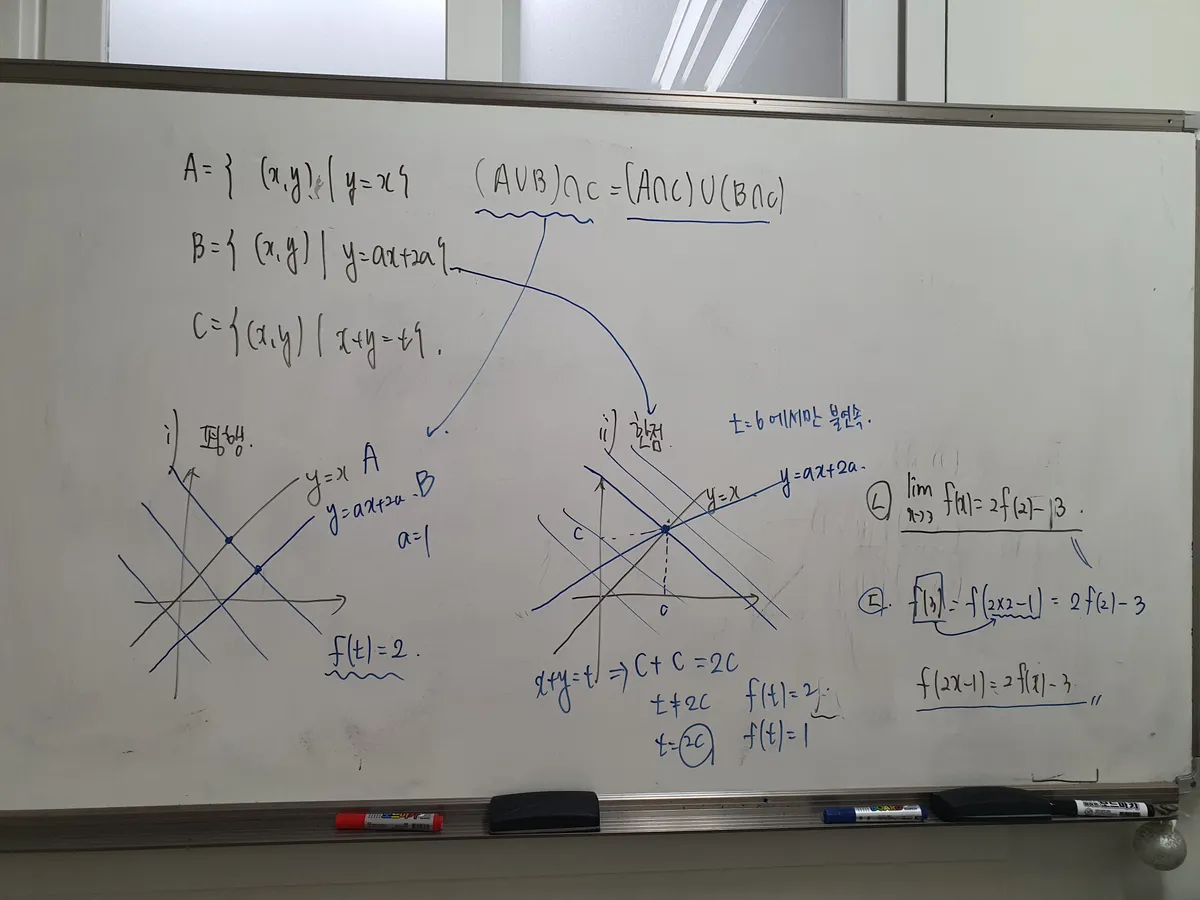 A={ (x,y) | y=x}
(A∪B)∩C=(A∩C)∪(B∩C)
B={ (x,y) | y=ax+2a}
C={(x,y) | x+y=t}.
i) 평행.
y=x A
y=ax+2a B
a=1
f(t)=2.
ii) 한점
t=6에서만 불연속.
y=x
y=ax+2a.
C
x+y=t ⇒ C+C=2C
t≠2C f(t)=2
t=2C f(t)=1
㉡ lim x→3 f(x)=2f(2)-3.
f(3)=f(2×2-1)=2f(2)-3
f(2x-1)=2f(x)-3